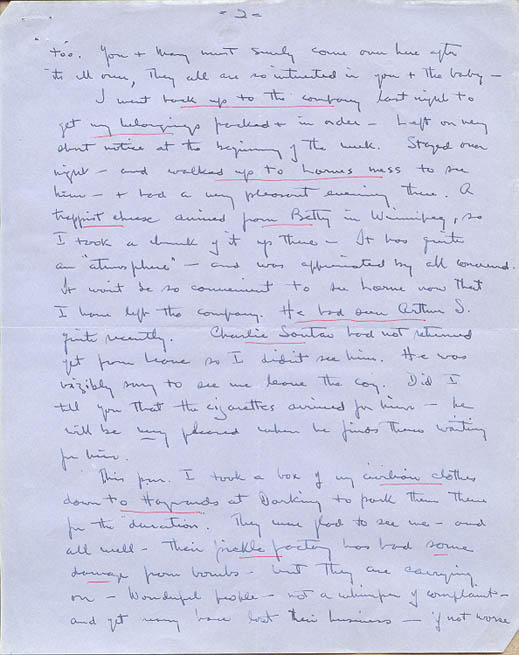 - 2 -
too. You + Mary must surely come over here after
it's all over, They all are so interested in you + the baby -
I went back up to the company last night to
get my belongings packed + in order - Left on very
short notice at the beginning of the week. Stayed over
night - and walked up to Lornes mess to see
him - + had a very pleasant evening there. A
trappist cheese arrived from Betty in Winnipeg, so
I took a chunk of it up there - It has quite
an "atmosphere" - and was appreciated by all concerned.
It won't be so convenient to see Lorne now that
I have left the company. He had seen Arthur S.
quite recently. Charlie had not returned
yet from leave so I didn't see him. He was
vizibly sorry to see me leave the coy. Did I
tell you that the cigarettes arrived for him - he
will be very pleased when he finds them waiting
for him.
This p.m. I took a box of my civilian clothes
down to Haywards at Dorking to park them there
for the duration. They were glad to see me - and
all well - Their pickle factory has had some
damage from bombs - but they are carrying
on - Wonderful people - not a whimper of complaint -
and yet many have lost their business - if not worse